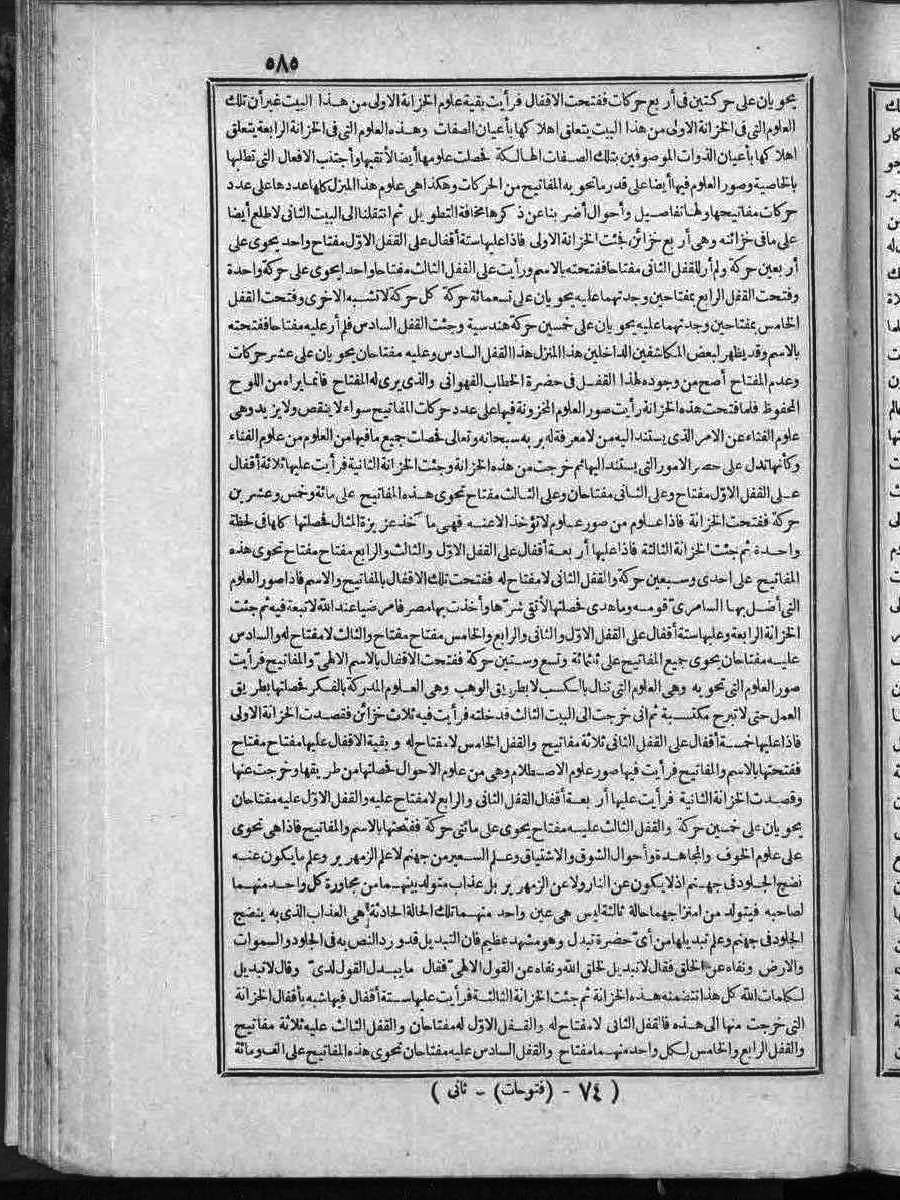 ٥٨٥
يحويان على حركتين في أربع حركات ففتحت الاقفال فرأيت بقية علوم الخزانة الاولى من هذا البيت غير أن تلك
العلوم التي في الخزانة الاولى من هذا البيت يتعلق اهلاكها بأعيان الصفات وهذه العلوم التي في الخزانة الرابعة يتعلق
اهلاكها بأعيان الذوات الموصوفين بتلك الصفات الهالكة فحصلت علومها أيضا لأتقيها وأجتنب الافعال التي تطلبها
بالخاصية وصور العلوم فيها أيضا على قدر ما تحويه المفاتيح من الحركات وهكذا هي علوم هذا المنزل كلها عددها على عدد
حركات مفاتيحها ولها تفاصيل وأحوال أضربنا عن ذكرها مخافة التطويل ثم انتقلنا الى البيت الثاني لاطلع أيضا
على ما في خزائنه وهي أربع خزائن فجئت الخزانة الاولى فاذا عليها ستة أقفال على القفل الاول مفتاح واحد يحوى على
أربعين حركة ولم أر للقفل الثاني مفتاحا ففتحته بالاسم ورأيت على القفل الثالث مفتاحا واحدا يحوى على حركة واحدة
وفتحت القفل الرابع بمفتاحين وجدتهما عليه يحويان على تسعمائة حركة كل حركة لا تشبه الاخرى وفتحت القفل
الخامس بمفتاحين وجدتهما عليه يحويان على خمسين حركة هندسية وجئت القفل السادس فلم أر عليه مفتاحا ففتحته
بالاسم وقد يظهر لبعض المكاشفين الداخلين هذا المنزل هذا القفل السادس وعليه مفتاحان يحويان على عشر حركات
وعدم المفتاح أصح من وجوده لهذا القفل في حضرة الخطاب الفهواني والذي يرى له المفتاح فانما يراه من اللوح
المحفوظ فلما فتحت هذه الخزانة رأيت صور العلوم المخزونة فيها على عدد حركات المفاتيح سواء لا ينقص ولا يزيد وهي
علوم الفناء عن الامر الذي يستند اليه من لا معرفة له بربه سبحانه وتعالى فحصلت جميع ما فيها من العلوم من علوم الفناء
وكأنها تدل على حصر الامور التي يستند اليها ثم خرجت من هذه الخزانة وجئت الخزانة الثانية فرأيت عليها ثلاثة أقفال
على القفل الاول مفتاح وعلى الثاني مفتاحان وعلى الثالث مفتاح تحوى هذه المفاتيح على مائة وخمس وعشرين
حركة ففتحت الخزانة فاذا علوم من صور علوم لا تؤخذ الا عنه فهى ما خذ عزيزة المثال فحصلتها كلها في لحظة
واحدة ثم جئت الخزانة الثالثة فاذا عليها أربعة أقفال على القفل الاول والثالث والرابع مفتاح مفتاح تحوى هذه
المفاتيح على احدى وسبعين حركة والقفل الثاني لا مفتاح له ففتحت تلك الاقفال بالمفاتيح والاسم فاذا صور العلوم
التي أضل بها السامري قومه وما هدى فحصلتها لأتقي شرها وأخذت بها مصرفا مرضيا عند الله لا تبعة فيه ثم جئت
الخزانة الرابعة وعليها ستة أقفال على القفل الاول والثاني والرابع والخامس مفتاح مفتاح والثالث لا مفتاح له والسادس
عليه مفتاحان يحوى جميع المفاتيح على ثلثمائة وتسع وستين حركة ففتحت الاقفال بالاسم الالهي والمفاتيح فرأيت
صور العلوم التي تحويه وهي العلوم التي تنال بالكسب لا بطريق الوهب وهي العلوم المدركة بالفكر فحصلتها بطريق
العمل حتى لا تبرح مكتسبة ثم اني خرجت الى البيت الثالث فدخلته فرأيت فيه ثلاث خزائن فقصدت الخزانة الاولى
فاذا عليها خمسة أقفال على القفل الثاني ثلاثة مفاتيح والقفل الخامس لا مفتاح له وبقية الاقفال عليها مفتاح مفتاح
ففتحتها بالاسم والمفاتيح فرأيت فيها صور علوم الاصطلام وهي من علوم الاحوال فحصلتها من طريقها وخرجت عنها
وقصدت الخزانة الثانية فرأيت عليها أربعة أقفال القفل الثاني والرابع لا مفتاح عليه والقفل الاول عليه مفتاحان
يحويان على خمسين حركة والقفل الثالث عليه مفتاح يحوى على مائتي حركة ففتحتها بالاسم والمفاتيح فاذا هي تحوى
على علوم الخوف والمجاهدة وأحوال الشوق والاشتياق وعلم السعير من جهنم لا علم الزمهرير وعلم ما يكون عنه
نضج الجلود في جهنم اذ لا يكون عن النار ولا عن الزمهرير بل عذاب متولد بينهما من مجاورة كل واحد منهما
لصاحبه فيتولد من امتزاجهما حالة ثالثة ليس هي عين واحد منهما تلك الحالة الحادثة هي العذاب الذي به ينضج
الجلود في جهنم وعلم تبديلها من أي حضرة تبدل وهو مشهد عظيم فان التبديل قد ورد النص به في الجلود والسموات
والارض ونفاه عن الخلق فقال لا تبديل لخلق الله ونفاه عن القول الالهي فقال ما يبدل القول لدي وقال لا تبديل
لكلمات الله كل هذا تتضمنه هذه الخزانة ثم جئت الخزانة الثالثة فرأيت عليها ستة أقفال فيها شبه بأقفال الخزانة
التي خرجت منها الى هذه فالقفل الثاني لا مفتاح له والقفل الاول له مفتاحان والقفل الثالث عليه ثلاثة مفاتيح
والقفل الرابع والخامس لكل واحد منهما مفتاح والقفل السادس عليه مفتاحان تحوى هذه المفاتيح على ألف ومائة
( ٧٤ - (فتوحات) - ثاني )